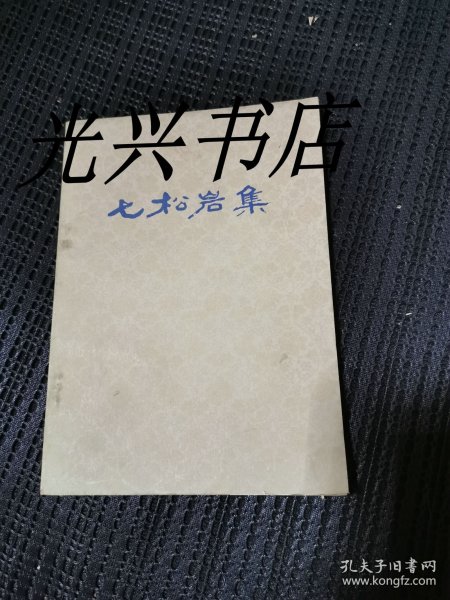 光兴书店
七松岩集
孔夫子旧书网
www.kongfz.com